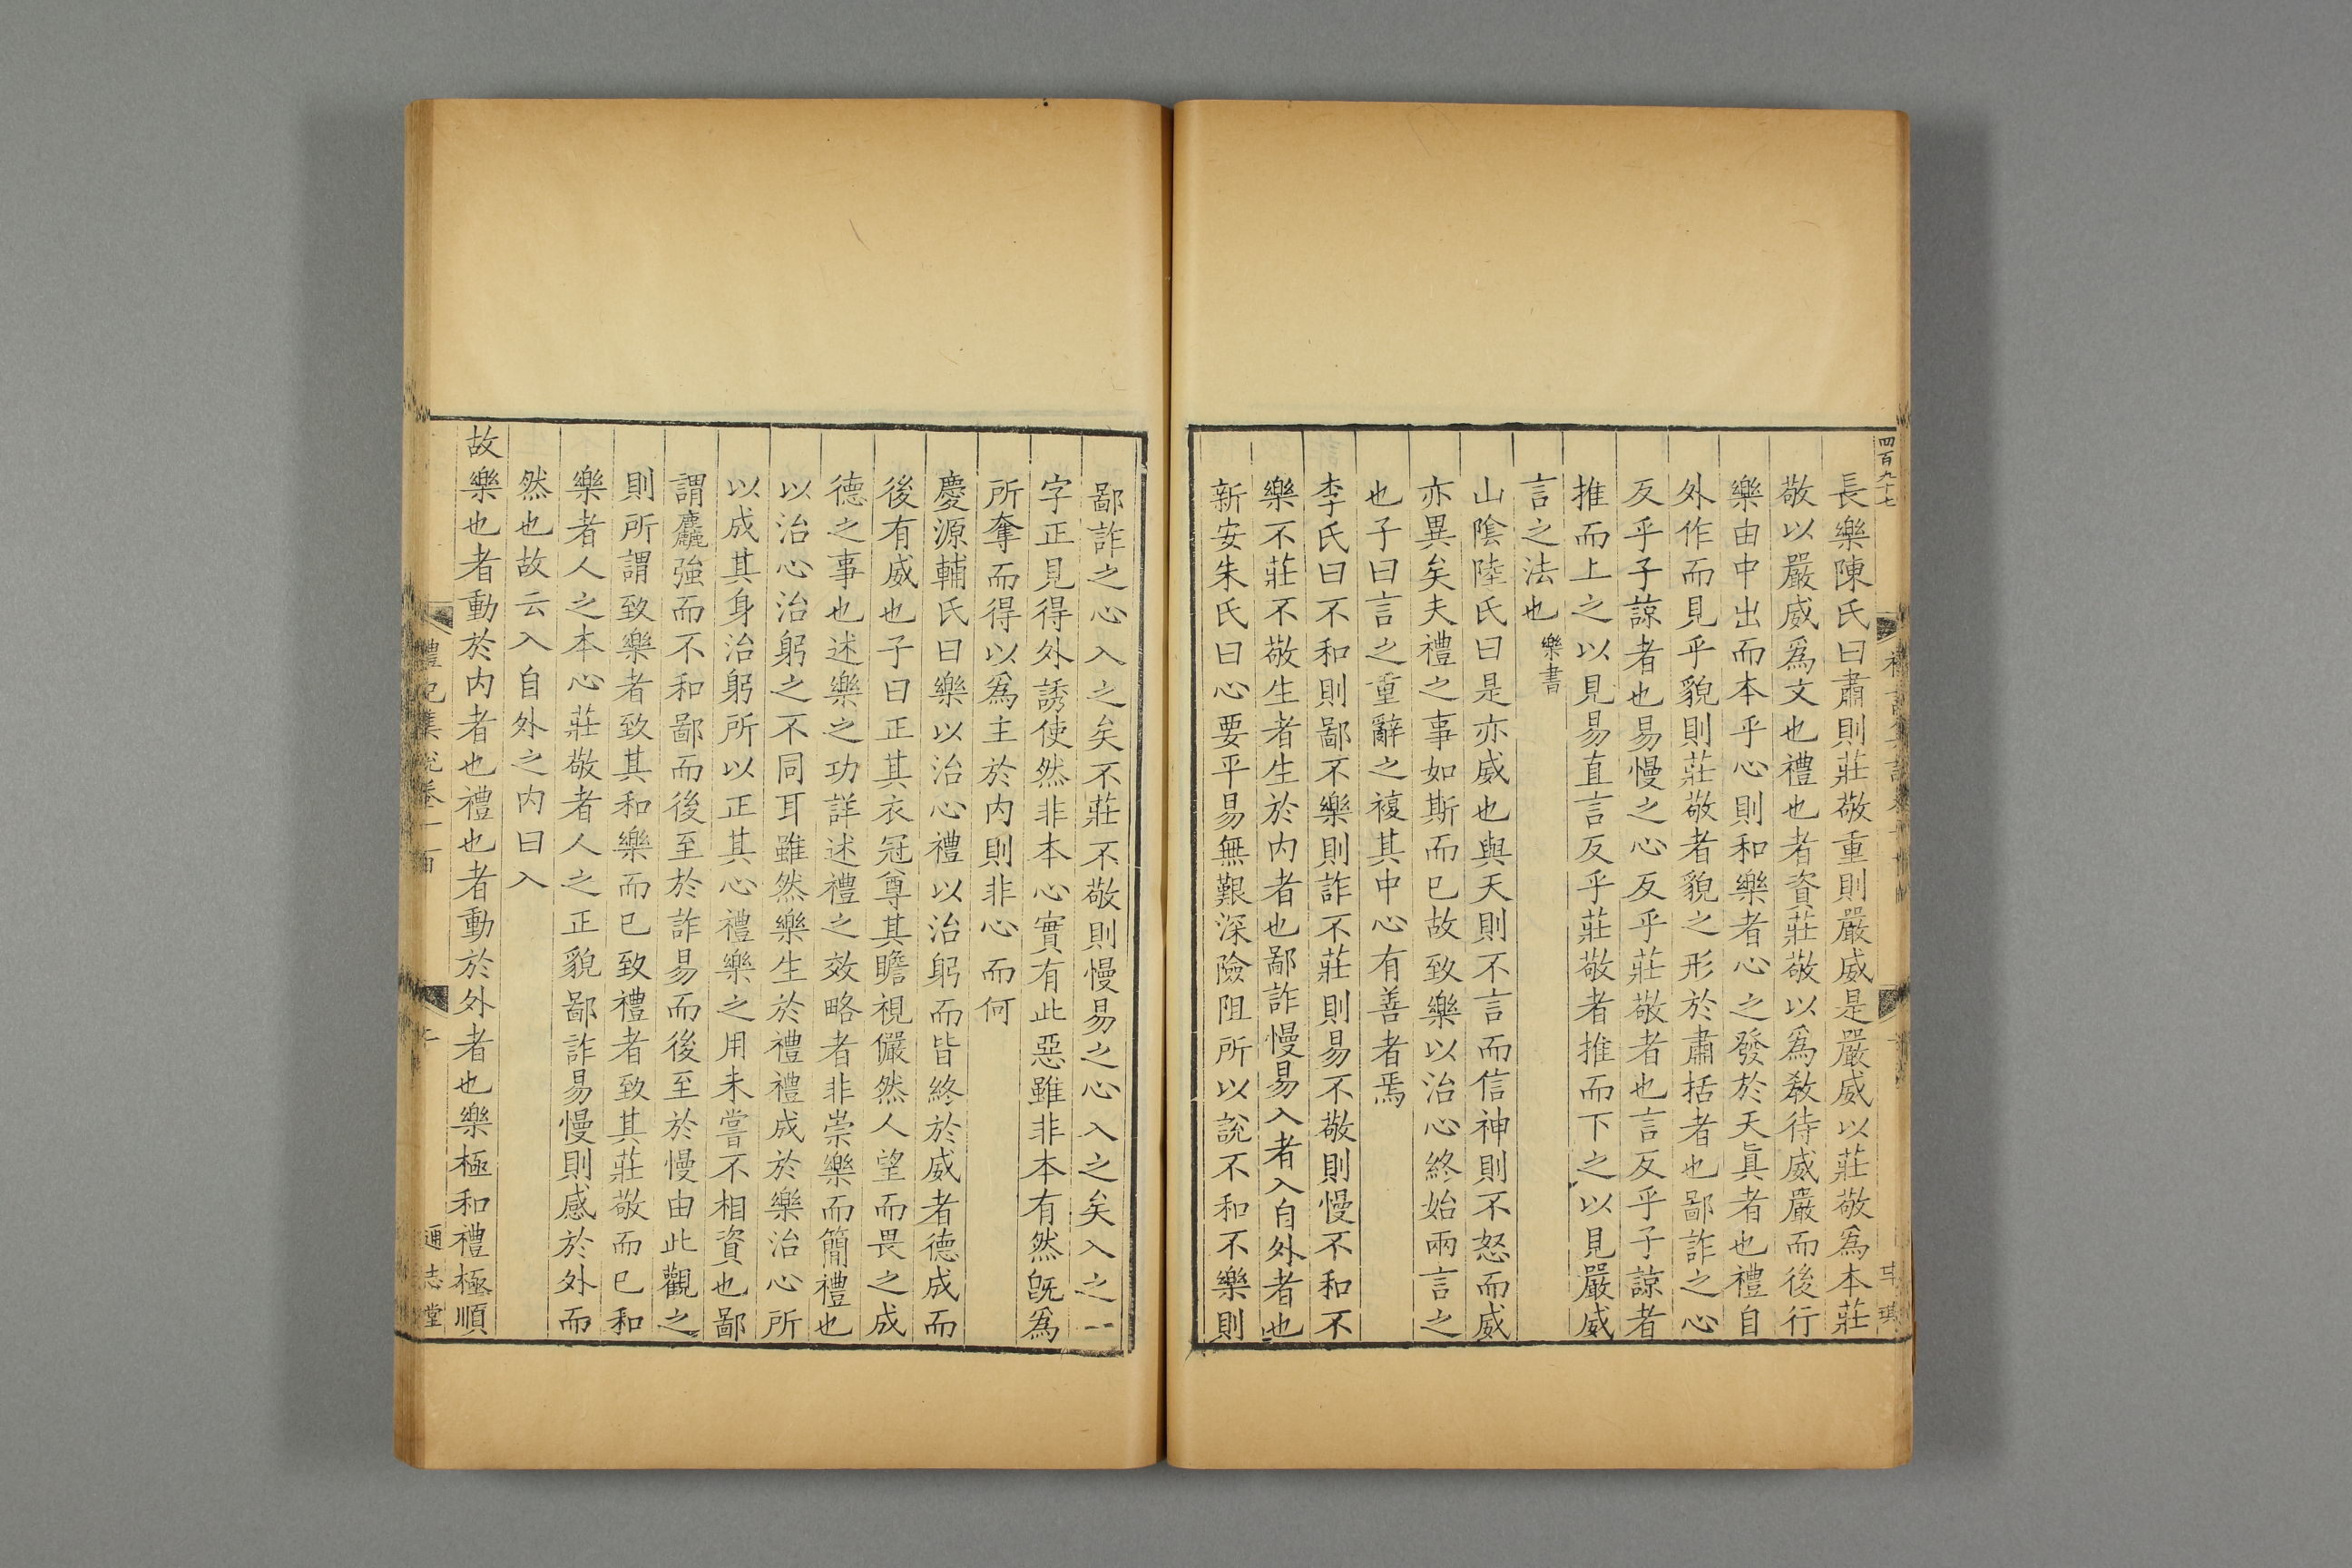 四百九十七
長樂陳氏曰肅則莊敬重則嚴威是嚴威以莊敬爲本莊
敬以嚴威爲文也禮也者資莊敬以爲敎待威嚴而後行
樂由中出而本乎心則和樂者心之發於天眞者也禮自
外作而見乎貌則莊敬者貌之形於肅括者也鄙詐之心
反乎子諒者也易慢之心反乎莊敬者也言反乎子諒者
推而上之以見易直言反乎莊敬者推而下之以見嚴威
言之法也樂書
山陰陸氏曰是亦威也與天則不言而信神則不怒而威
亦異矣夫禮之事如斯而已故致樂以治心終始兩言之
也子曰言之重辭之複其中心有善者焉
李氏曰不和則鄙不樂則詐不莊則易不敬則慢不和不
樂不莊不敬生者生於内者也鄙詐慢易入者入自外者也
新安朱氏曰心要平易無艱深險阻所以說不和不樂則
鄙詐之心入之矣不莊不敬則慢易之心入之矣入之一
字正見得外誘使然非本心實有此惡雖非本有然旣爲
所奪而得以爲主於内則非心而何
慶源輔氏曰樂以治心禮以治躬而皆終於威者德成而
後有威也子曰正其衣冠尊其瞻視儼然人望而畏之成
德之事也述樂之功詳述禮之效略者非崇樂而簡禮也
以治心治躬之不同耳雖然樂生於禮禮成於樂治心所
以成其身治躬所以正其心禮樂之用未嘗不相資也鄙
謂麤強而不和鄙而後至於詐易而後至於慢由此觀之
則所謂致樂者致其和樂而已致禮者致其莊敬而已和
樂者人之本心莊敬者人之正貌鄙詐易慢則感於外而
然也故云入自外之内曰入
故樂也者動於内者也禮也者動於外者也樂極和禮極順
禮記集說卷一百
通志堂